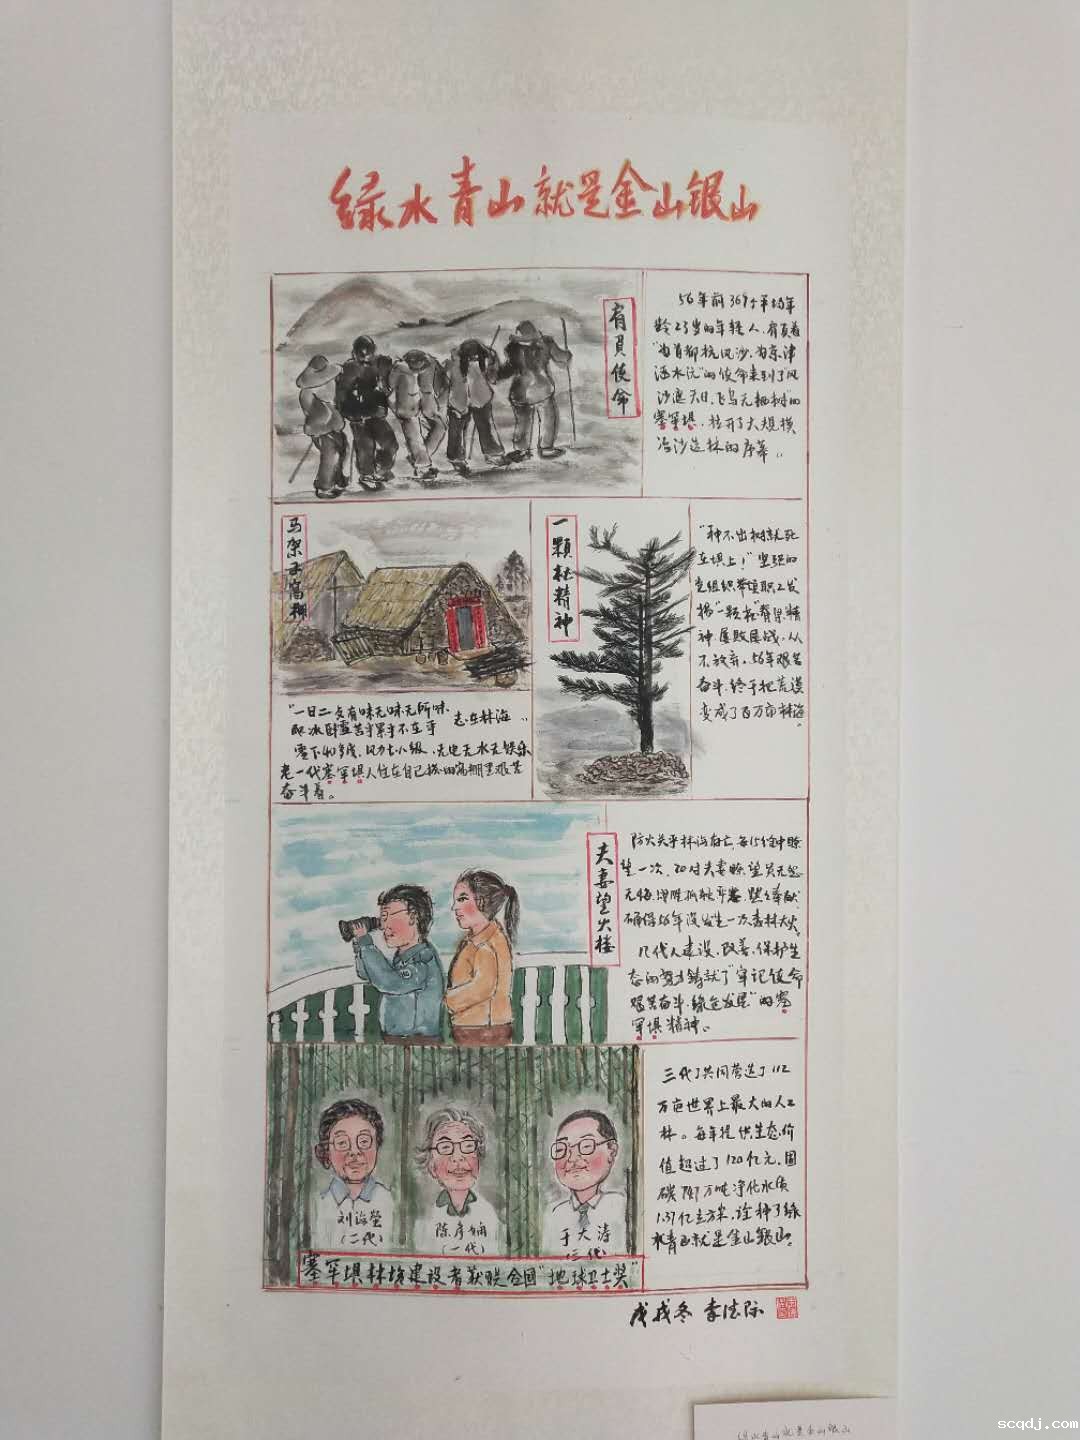 绿水青山就是金山银山
肩負使命
56年前369个平均年
龄23岁的年轻人，肩負着
"为首都抗风沙，为京津
洒水沅"的使命来到了风
沙遮天日，飞鸟无栖树"的
塞罕坝，拉开了大规模
治沙造林的序幕。
马架子窝棚
"一日三歺有味无味无所味，
趴冰卧雪苦乎累乎不在乎
志在林海"
零下40多度，风力七八级，无电无水无娱乐
老一代塞罕坝人住在自己搭的窝棚里艰苦
奋斗着。
一颗松精神
"种不出树就死
在坝上！"坚强的
党组织带领职工发
扬"一颗松"精
神屡败屡战，从
不放弃。56年艰苦
奋斗，终于把荒漠
变成了百万亩林海。
夫妻望火楼
防火关乎林海存亡，每15分钟瞭
望一次，20对夫妻瞭望员无怨
无悔，
确保56年没发生一次森林大火。
几代人建设、改善、保护生
态的努力铸就了"牢记使命
艰苦奋斗，绿色发展"的塞
罕坝精神。
刘海莹
（二代）
陈彦娴
（一代）
于大涛
（三代）
塞罕坝林场建设者获联合国"地球卫士奖"
三代了共同营造了112
万亩世界上最大的人工
林。每年提供生态价
值超过了120亿元，固
碳747万吨净化水质
1.37亿立方米，诠释了绿
水青山就是金山银山。
戊戌冬 李法际
绿水青山就是金山银山
scqdj.com